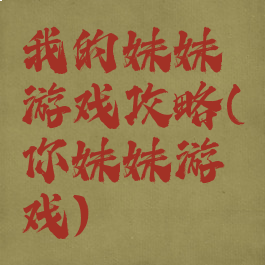 我的妹妹
游戏攻略(
你妹妹游
戏)